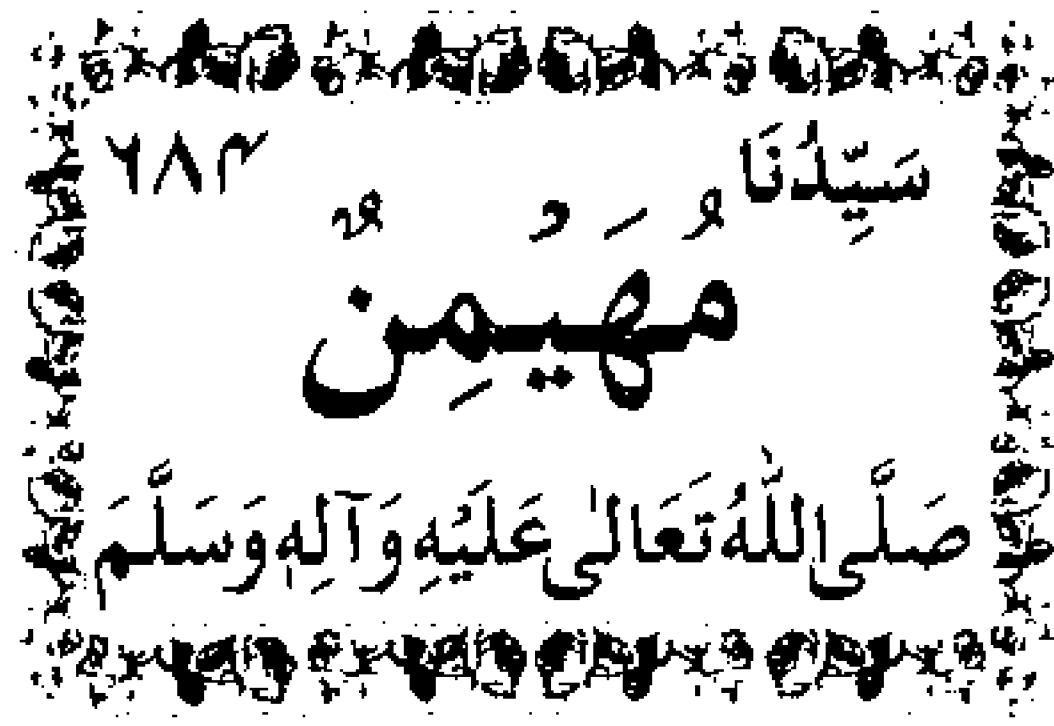 سَيِّدُنَا ۶۸۴
مُهَيْمِنٌ
صَلَّى اللّٰهُ تَعَالىٰ عَلَيْهِ وَآلِهٖ وَسَلَّمَ